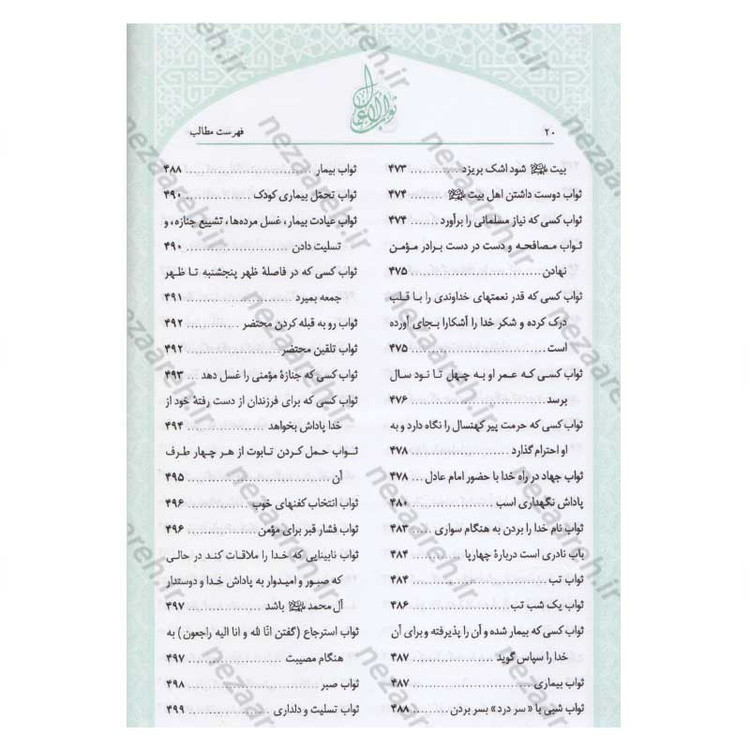 ۲۰
ثواب الاعمال
فهرست مطالب
بیت ﷺ شود اشک بریزد ............ ۴۷۳
ثواب دوست داشتن اهل بیت ﷺ ........ ۴۷۴
ثواب کسی که نیاز مسلمانی را برآورد .... ۴۷۴
ثواب مصافحه و دست در دست برادر مؤمن
نهادن ........................ ۴۷۵
ثواب کسی که قدر نعمتهای خداوندی را با قلب
درک کرده و شکر خدا را آشکارا بجای آورده
است ........................ ۴۷۵
ثواب کسی که عمر او به چهل تا نود سال
برسد ........................ ۴۷۶
ثواب کسی که حرمت پیر کهنسال را نگاه دارد و به
او احترام گذارد ................ ۴۷۸
ثواب جهاد در راه خدا با حضور امام عادل ... ۴۷۸
پاداش نگهداری اسب .............. ۴۸۰
ثواب نام خدا را بردن به هنگام سواری ..... ۴۸۳
باب نادری است دربارهٔ چهارپا ........ ۴۸۴
ثواب تب ...................... ۴۸۴
ثواب یک شب تب ................ ۴۸۶
ثواب کسی که بیمار شده و آن را پذیرفته و برای آن
خدا را سپاس گوید .............. ۴۸۷
ثواب بیماری .................. ۴۸۷
ثواب شبی با «سر درد» بسر بردن ...... ۴۸۸
ثواب بیمار .................... ۴۸۸
ثواب تحمّل بیماری کودک .......... ۴۹۰
ثواب عیادت بیمار، غسل مرده‌ها، تشییع جنازه، و
تسلیت دادن .................. ۴۹۰
ثواب کسی که در فاصلهٔ ظهر پنجشنبه تا ظهر
جمعه بمیرد .................. ۴۹۱
ثواب رو به قبله کردن محتضر ........ ۴۹۲
ثواب تلقین محتضر .............. ۴۹۲
ثواب کسی که جنازهٔ مؤمنی را غسل دهد ... ۴۹۳
ثواب کسی که برای فرزندان از دست رفتهٔ خود از
خدا پاداش بخواهد .............. ۴۹۴
ثواب حمل کردن تابوت از هر چهار طرف
آن ........................ ۴۹۵
ثواب انتخاب کفنهای خوب .......... ۴۹۶
ثواب فشار قبر برای مؤمن .......... ۴۹۶
ثواب نابینایی که خدا را ملاقات کند در حالی
که صبور و امیدوار به پاداش خدا و دوستدار
آل محمد ﷺ باشد .............. ۴۹۷
ثواب استرجاع (گفتن انّا لله و انا الیه راجعون) به
هنگام مصیبت .................. ۴۹۷
ثواب صبر .................... ۴۹۸
ثواب تسلیت و دلداری ............ ۴۹۹
nezaareh.ir